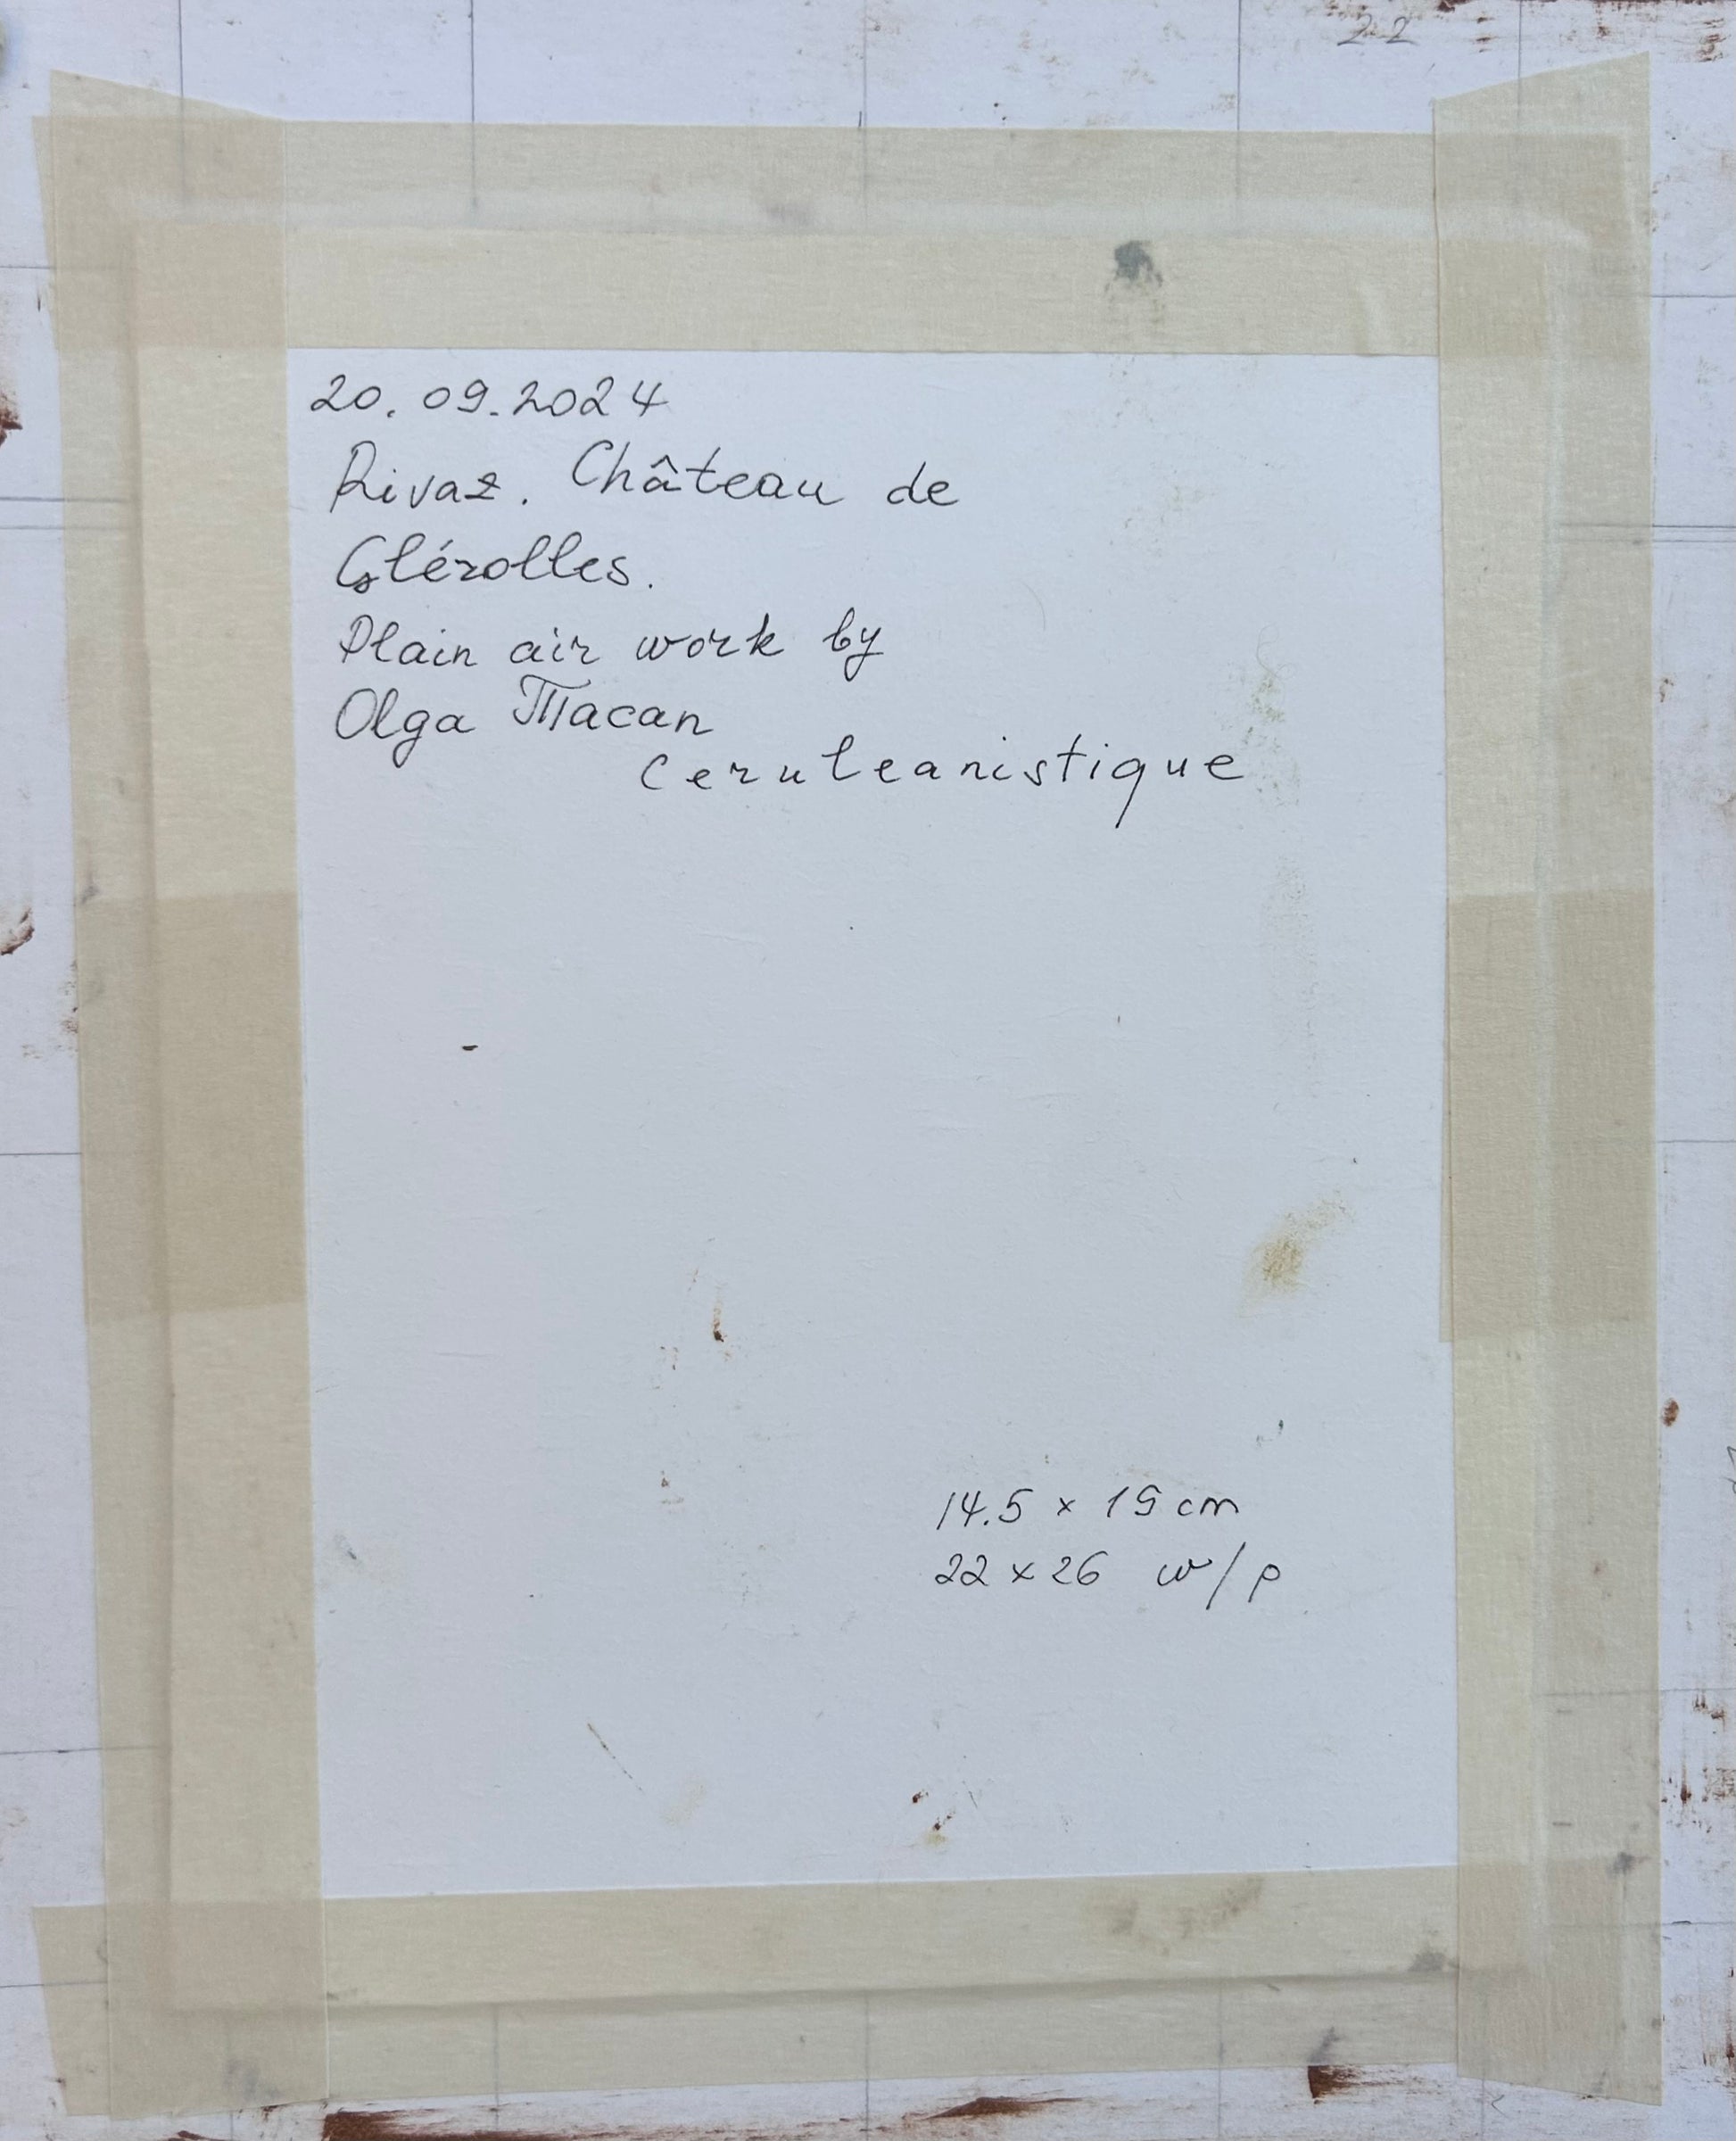 22
20.09.2024
Rivaz. Château de
Glérolles.
Plain air work by
Olga Tracan
Ceruleanistique
14.5 × 19 cm
22 × 26 w/p